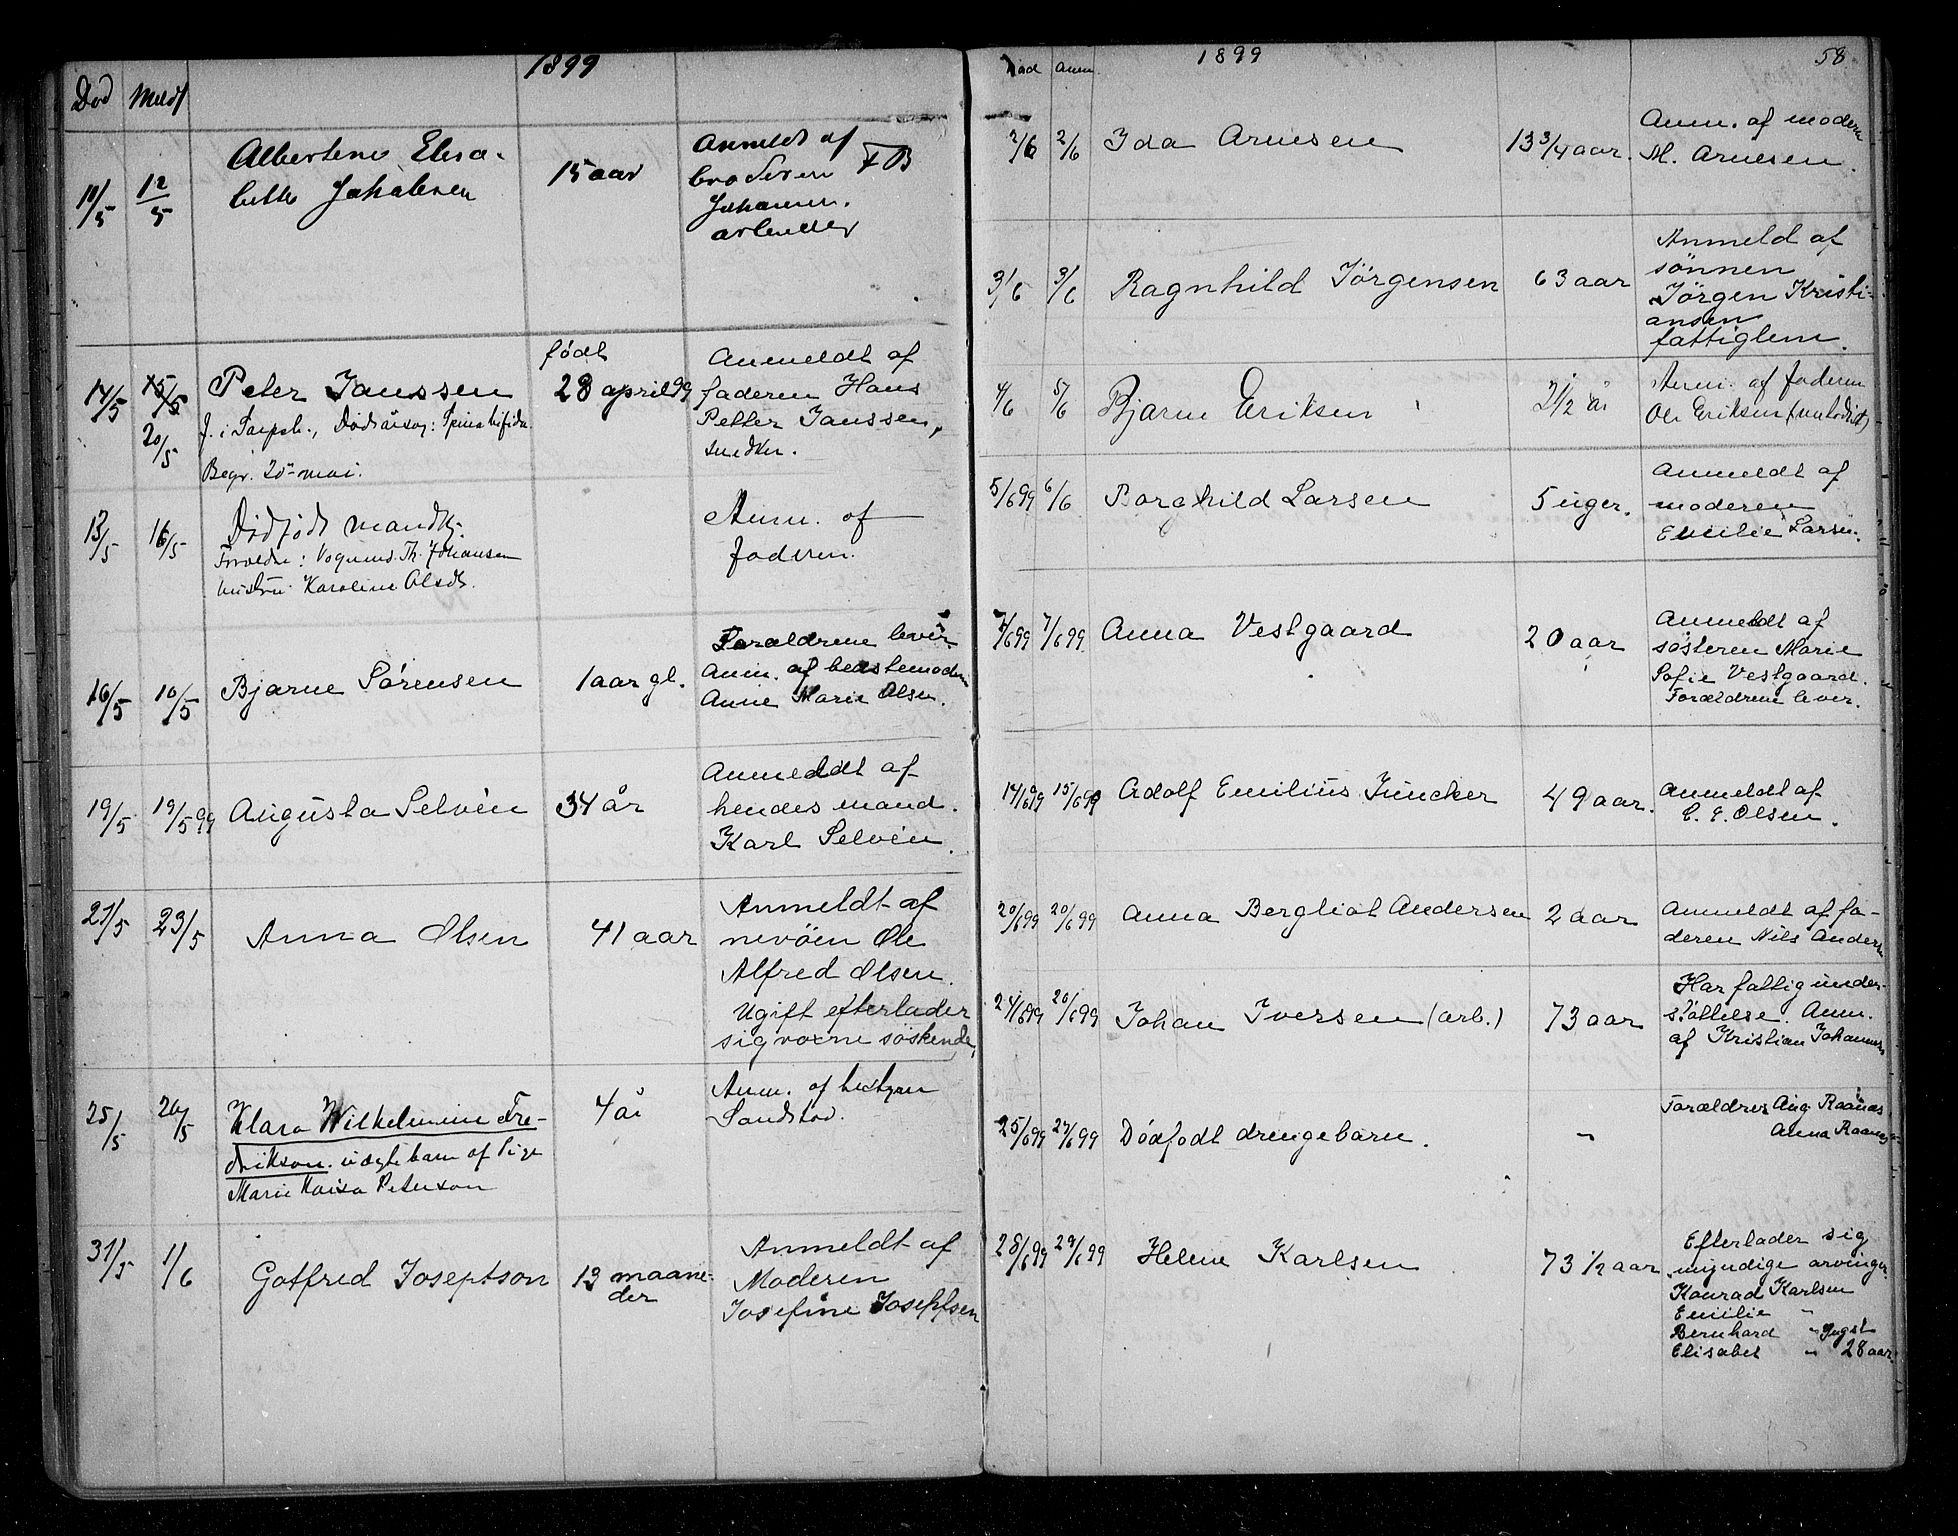 1899
Død Meldt
11/5 12/5 Albertine Elisa-
bette Johansen
15 aar
Anmeldt af
broderen FB
Johannes.
arbeider
14/5 15/5 Peter Janssen
20/5
født
28 april 99
Begr. 20de mai.
Anmeldt af
faderen Hans
Petter Janssen,
snedker.
13/5 16/5 Dødfødt mandkj.
Forældre: Vognmd. Th. Johansen
hustru Karoline Olsdt.
Anm. af
faderen.
16/5 10/5 Bjarne Sørensen
1 aar gl.
Forældrene lever
Anm. af bedstemoderen
Anne Marie Olsen.
19/5 19/5 99 Augusta Selvén
34 år
Anmeldt af
hendes mand.
Karl Selvén.
21/5 23/5 Anna Olsen
41 aar
Anmeldt af
nevöen Ole
Alfred Olsen.
Ugift efterlader
sig voxne söskende,
25/5 26/5 Klara Wilhelmine Fre-
drikson. uægte barn af Pige
Marie Kaisa Peterson
4 år
Anm. af bestyrer
Sandstöd.
31/5 1/6 Gotfred Josephson
13 maane-
der
Anmeldt af
Moderen
Josefine Josephsen
1899
58
Død Anm.
2/6 2/6 Ida Arnesen
13 3/4 aar.
Anm. af moderen
M. Arnesen.
3/6 3/6 Ragnhild Jörgensen
63 aar
Anmeld af
sönnen
Jörgen Kristi-
ansen
fattiglem.
4/6 5/6 Bjarne Eriksen
2 1/2 år
Anm. af faderen
Ole Eriksen (metodist)
5/6 99 6/6 Borghild Larsen
5 uger.
Anmeldt af
moderen
Emilie Larsen.
7/6 99 7/6 99 Anna Vestgaard
20 aar
Anmeldt af
søsteren Marie
Sofie Vestgaard.
Forældrene lever.
14/6 99 15/6 99 Adolf Emilius Juncker
49 aar.
Anmeldt af
C. E. Olsen.
20/6 99 20/6 99 Anna Bergliot Andersen
2 aar
Anmeldt af fa-
deren Nils Andersen
24/6 99 20/6 99 Johan Iversen (arb.)
73 aar
Har fattigunder-
støttelse. Anm.
af Kristian Johannes
25/6 99 27/6 99 Dødfødt drengebarn.
"
Forældres Aug. Raanæs
Anna Raanæs
28/6 99 29/6 99 Helene Karlsen
73 1/2 aar
Efterlader sig
myndige arvinger.
Konrad Karlsen
Emilie "
Bernhard " yngst
Elisabet " 28 aar.